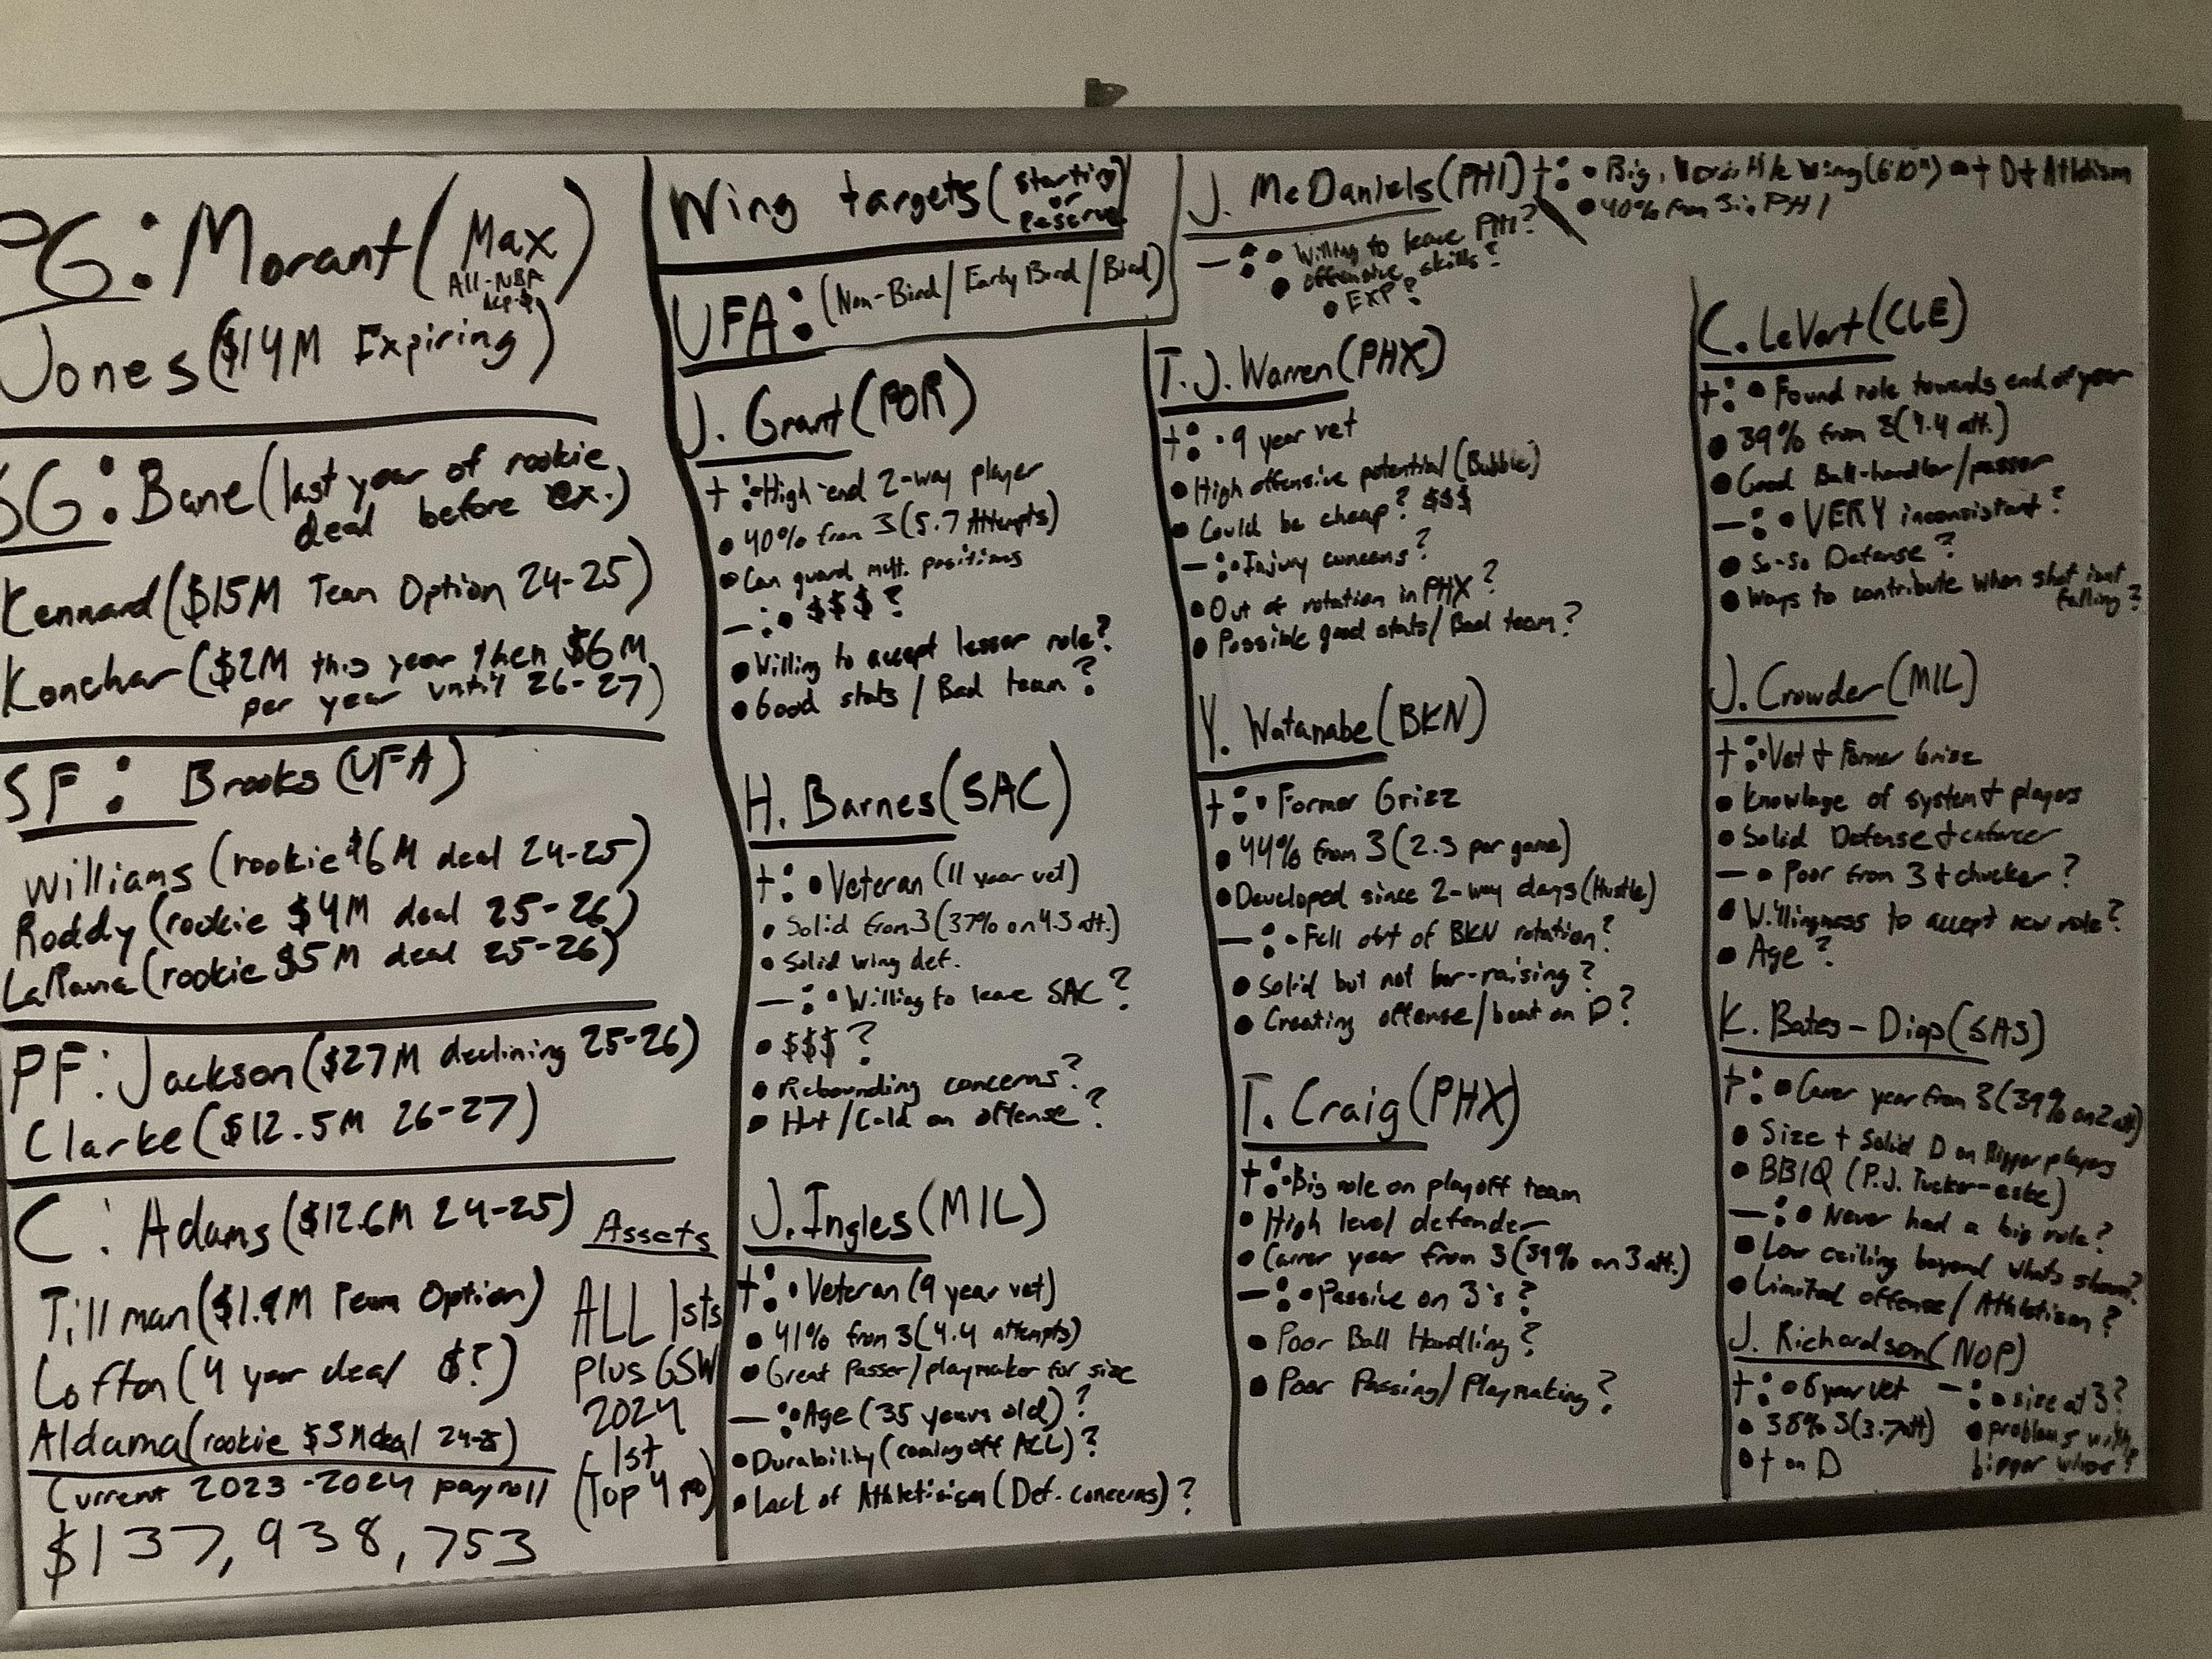 PG: Morant (Max
All-NBA
dep.$)
Jones ($14M Expiring)
SG: Bane (last year of rookie
deal before ex.)
Kennard ($15M Team Option 24-25)
Konchar ($2M this year then $6M
per year until 26-27)
SF: Brooks (UFA)
Williams (rookie $6M deal 24-25)
Roddy (rookie $4M deal 25-26)
LaRavia (rookie $5M deal 25-26)
PF: Jackson ($27M declining 25-26)
Clarke ($12.5M 26-27)
C: Adams ($12.6M 24-25)
Tillman ($1.9M Team Option)
Lofton (4 year deal $?)
Aldama (rookie $3M deal 24-25)
Current 2023-2024 payroll
$137,938,753
Assets
ALL 1sts
plus GSW
2024
1st
(Top 4 )
Wing targets (Starting
or
Reserve)
UFA: (Non-Bird/Early Bird/Bird)
J. Grant (POR)
+: • High end 2-way player
• 40% from 3 (5.7 Attempts)
• Can guard mult. positions
-: • $$$?
• Willing to accept lesser role?
• Good stats / Bad team?
H. Barnes (SAC)
+: • Veteran (11 year vet)
• Solid from 3 (37% on 4.5 att.)
• Solid wing def.
-: • Willing to leave SAC?
• $$$?
• Rebounding concerns?
• Hot/Cold on offense?
J. Ingles (MIL)
+: • Veteran (9 year vet)
• 41% from 3 (4.4 attempts)
• Great Passer/playmaker for size
-: • Age (35 years old)?
• Durability (coming off ACL)?
• Lack of Athleticism (Def. concerns)?
J. McDaniels (PHI) +: • Big, Wing (6'10") + D + Athletism
• 40% from 3 in PHI
-: • Willing to leave PHI?
• Offensive skills?
• EXP?
T.J. Warren (PHX)
+: • 9 year vet
• High offensive potential (Bubble)
• Could be cheap? $$$
-: • Injury concerns?
• Out of rotation in PHX?
• Possible good stats/Bad team?
Y. Watanabe (BKN)
+: • Former Grizz
• 44% from 3 (2.3 per game)
• Developed since 2-way days (Hustle)
-: • Fell out of BKN rotation?
• Solid but not bar-raising?
• Creating offense/beat on D?
T. Craig (PHX)
+: • Big role on playoff team
• High level defender
• Career year from 3 (39% on 3 att.)
-: • Passive on 3's?
• Poor Ball Handling?
• Poor Passing/Playmaking?
C. LeVert (CLE)
+: • Found role towards end of year
• 39% from 3 (4.4 att.)
• Good Ball-handler/passer
-: • VERY inconsistant?
• So-So Defense?
• Ways to contribute when shot isnt
falling?
J. Crowder (MIL)
+: • Vet + Former Grizz
• Knowlage of system + players
• Solid Defense + enforcer
- • Poor from 3 + chucker?
• Willingness to accept new role?
• Age?
K. Bates-Diop (SAS)
+: • Career year from 3 (39% on 2 att)
• Size + Solid D on Bigger players
• BBIQ (P.J. Tucker-eske)
-: • Never had a big role?
• Low ceiling beyond whats shown?
• Limited offense/Athletism?
J. Richardson (NOP)
+: • 8 year vet -: • size at 3?
• 38% 3 (3.7 att) • problems with
• + on D bigger wings?